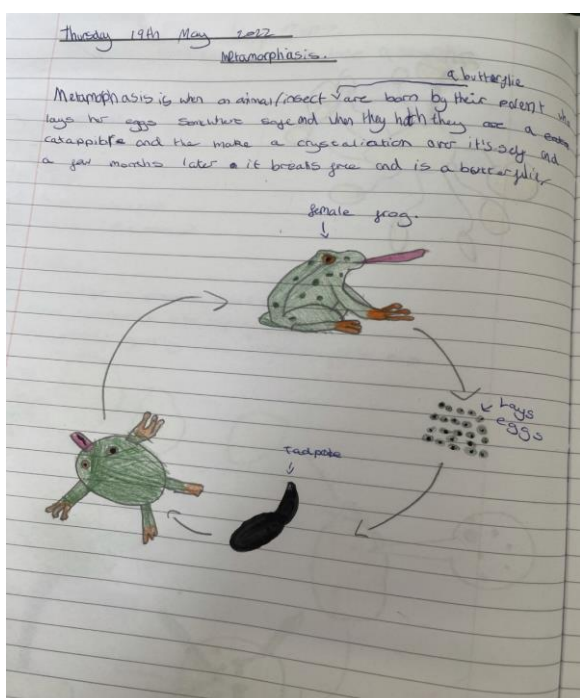 Thursday 19th May 2022
Metamorphasis.
a butterflie
Metamophasis is when an animal/insect are born by their parent
lays her eggs somwhere safe and when they hath they are a
catappible and the make a crystaliation over it's self and
a few months later it breaks free and is a butterflie,
female frog.
Lays
eggs
Tadpole